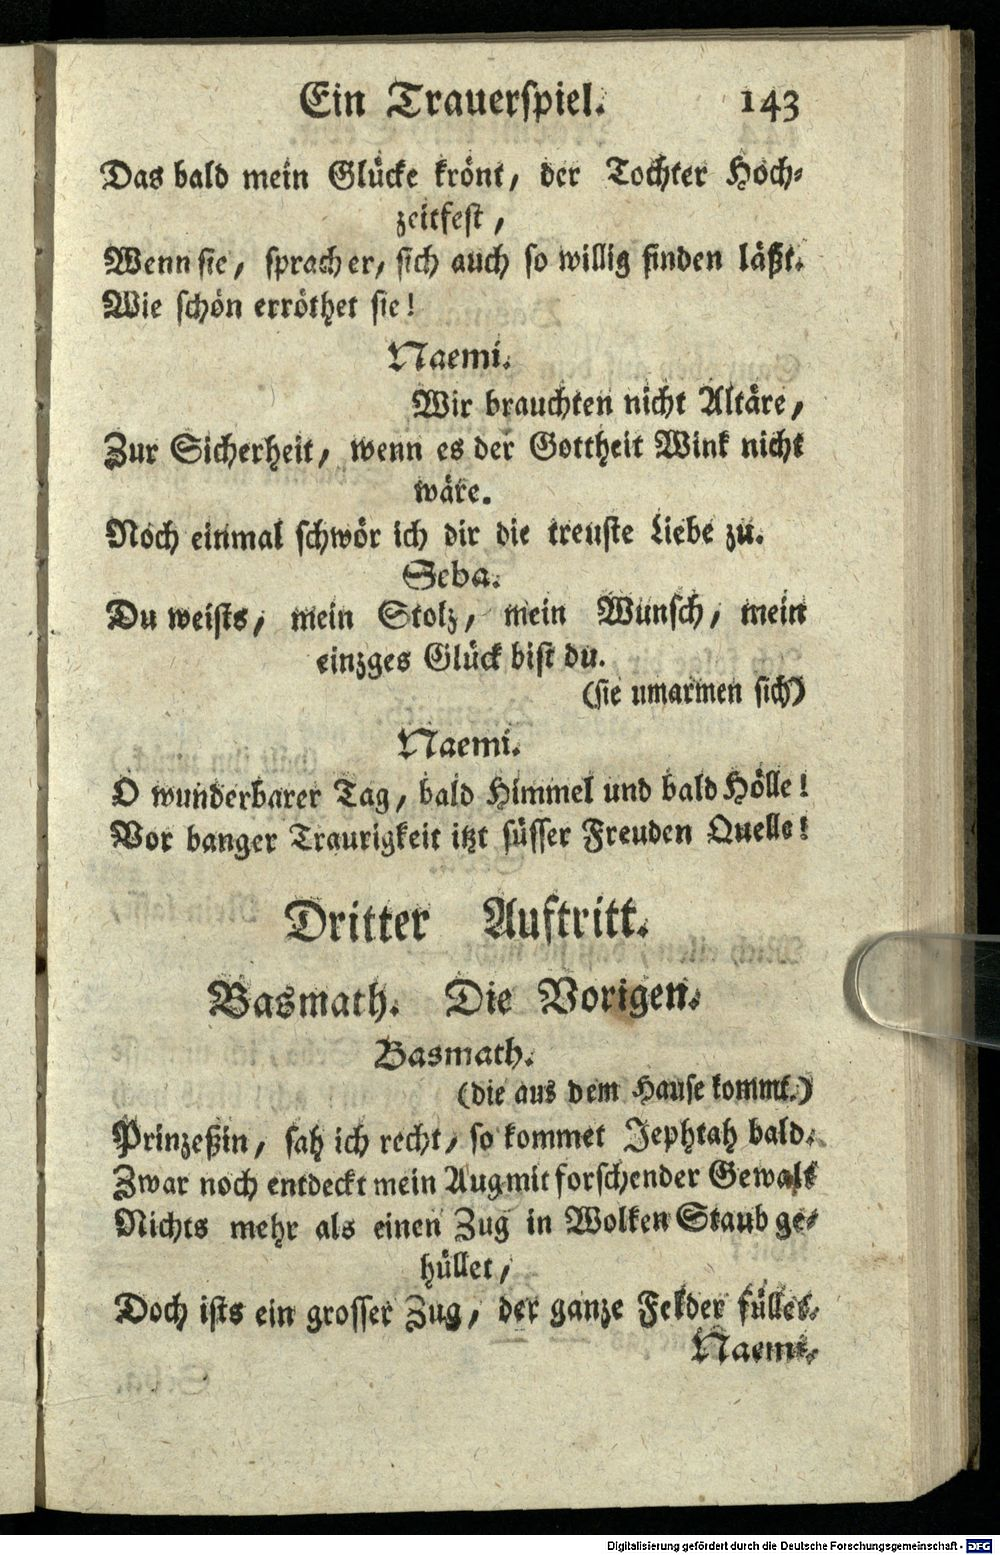 Ein Trauerspiel. 143
Das bald mein Glücke krönt, der Tochter Hoch-
zeitfest,
Wenn sie, sprach er, sich auch so willig finden läßt.
Wie schön erröthet sie!
Naemi.
Wir brauchten nicht Altäre,
Zur Sicherheit, wenn es der Gottheit Wink nicht
wäre.
Noch einmal schwör ich dir die treuste Liebe zu.
Seba.
Du weists, mein Stolz, mein Wunsch, mein
einzges Glück bist du.
(sie umarmen sich)
Naemi.
O wunderbarer Tag, bald Himmel und bald Hölle!
Vor banger Traurigkeit itzt süsser Freuden Quelle!
Dritter Auftritt.
Basmath. Die Vorigen.
Basmath.
(die aus dem Hause kommt.)
Prinzeßin, sah ich recht, so kommet Jephtah bald.
Zwar noch entdeckt mein Aug mit forschender Gewalt
Nichts mehr als einen Zug in Wolken Staub ge-
hüllet,
Doch ists ein grosser Zug, der ganze Felder füllet.
Naemi.
Digitalisierung gefördert durch die Deutsche Forschungsgemeinschaft - DFG